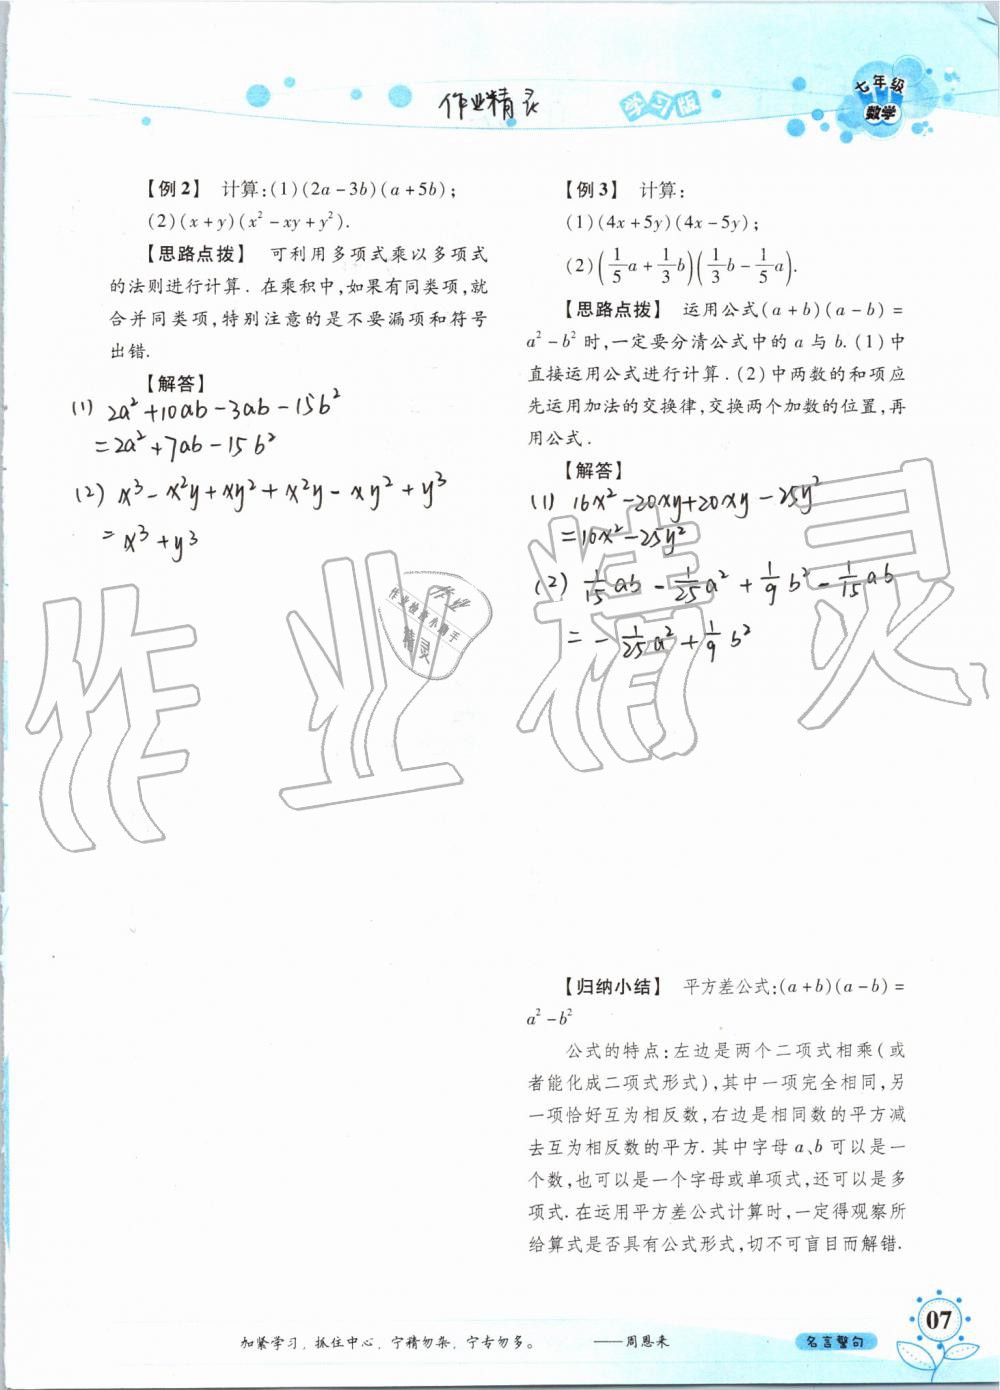 作业精灵
学习版
七年级
数学
【例2】 计算:(1)(2a-3b)(a+5b);
(2)(x+y)(x²-xy+y²).
【思路点拨】 可利用多项式乘以多项式
的法则进行计算. 在乘积中,如果有同类项,就
合并同类项,特别注意的是不要漏项和符号
出错.
【解答】
(1) 2a²+10ab-3ab-15b²
=2a²+7ab-15b²
(2) x³-x²y+xy²+x²y-xy²+y³
=x³+y³
【例3】 计算:
(1)(4x+5y)(4x-5y);
(2)(1/5a+1/3b)(1/3b-1/5a).
【思路点拨】 运用公式(a+b)(a-b)=
a²-b²时,一定要分清公式中的a与b.(1)中
直接运用公式进行计算.(2)中两数的和项应
先运用加法的交换律,交换两个加数的位置,再
用公式.
【解答】
(1) 16x²-20xy+20xy-25y²
=16x²-25y²
(2) 1/15ab-1/25a²+1/9b²-1/15ab
=-1/25a²+1/9b²
作业
作业检查小助手
精灵
作业精灵
【归纳小结】 平方差公式:(a+b)(a-b)=
a²-b²
公式的特点:左边是两个二项式相乘(或
者能化成二项式形式),其中一项完全相同,另
一项恰好互为相反数,右边是相同数的平方减
去互为相反数的平方.其中字母a、b可以是一
个数,也可以是一个字母或单项式,还可以是多
项式.在运用平方差公式计算时,一定得观察所
给算式是否具有公式形式,切不可盲目而解错.
加紧学习,抓住中心,宁精勿杂,宁专勿多。 ——周恩来
名言警句
07